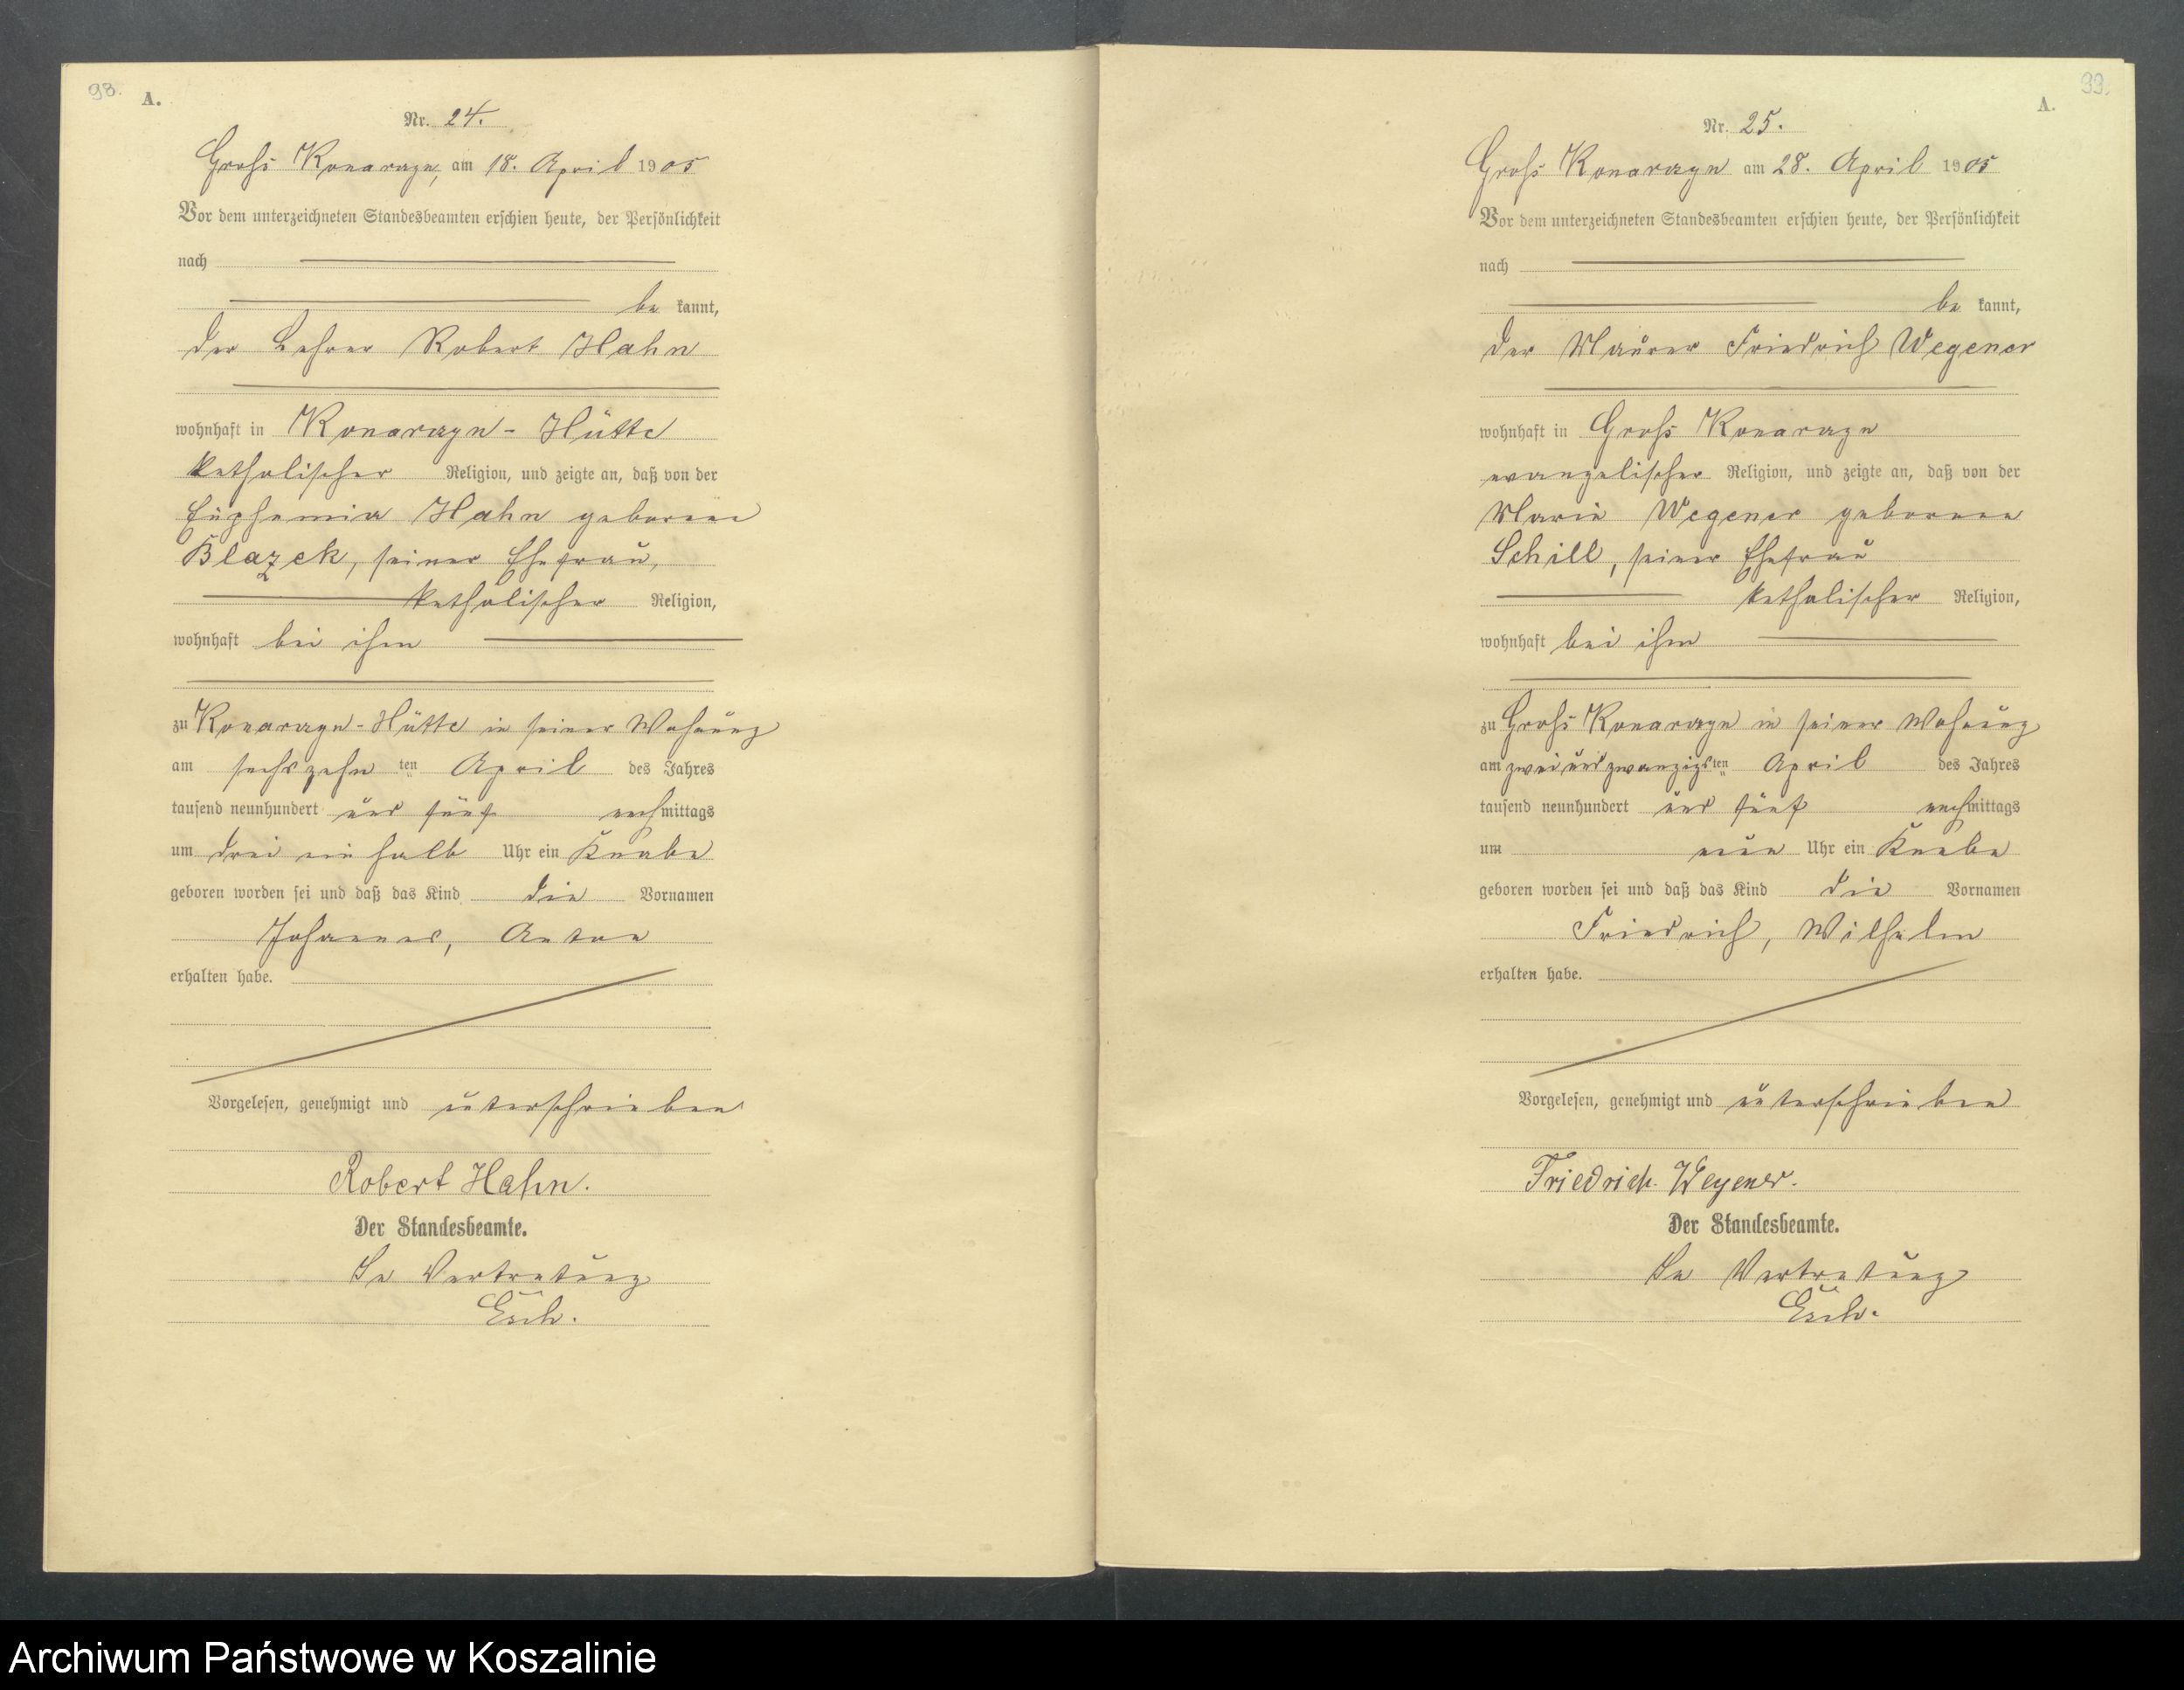 98.
A.
Nr. 24.
Groß Konarzyn, am 18. April 1905
Vor dem unterzeichneten Standesbeamten erschien heute, der Persönlichkeit
nach
be kannt,
der Lehrer Robert Hahn
wohnhaft in Konarzyn-Hütte
katholischer Religion, und zeigte an, daß von der
Euphemia Hahn geborene
Blazek, seiner Ehefrau,
katholischer Religion,
wohnhaft bei ihm
zu Konarzyn-Hütte in seiner Wohnung
am sechszehn ten April des Jahres
tausend neunhundert und fünf nachmittags
um drei ein halb Uhr ein Knabe
geboren worden sei und daß das Kind die Vornamen
Johannes, Anton
erhalten habe.
Vorgelesen, genehmigt und unterschrieben
Robert Hahn.
Der Standesbeamte.
In Vertretung
Esch.
99.
A.
Nr. 25.
Groß Konarzyn am 28. April 1905
Vor dem unterzeichneten Standesbeamten erschien heute, der Persönlichkeit
nach
be kannt,
der Maurer Friedrich Wegener
wohnhaft in Groß Konarzyn
evangelischer Religion, und zeigte an, daß von der
Marie Wegener geborene
Schill, seiner Ehefrau
katholischer Religion,
wohnhaft bei ihm
zu Groß Konarzyn in seiner Wohnung
am zweiundzwanzigsten April des Jahres
tausend neunhundert und fünf nachmittags
um neun Uhr ein Knabe
geboren worden sei und daß das Kind die Vornamen
Friedrich, Wilhelm
erhalten habe.
Vorgelesen, genehmigt und unterschrieben
Friedrich Wegener.
Der Standesbeamte.
In Vertretung
Esch.
Archiwum Państwowe w Koszalinie